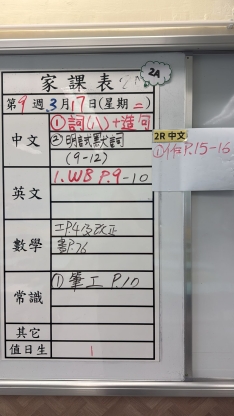 家課表
2A
第9週3月17日(星期二)
中文
①詞(八)+造句
②明試默詞
(9-12)
2R 中文
P.15-16
英文
1. WB P.9-10
數學
工P.4及改正
書P.76
常識
①筆工 P.10
其它
值日生
1